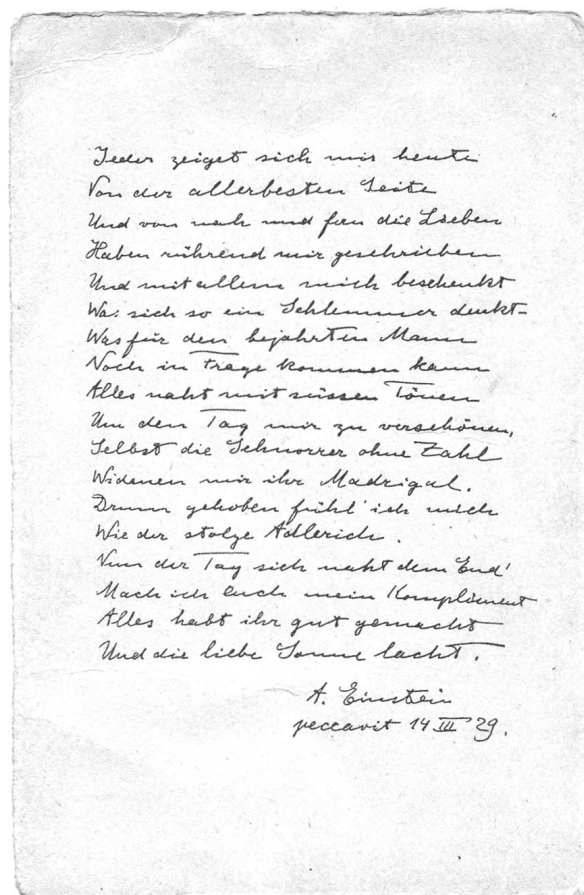 Jeder zeiget sich mir heute
Von der allerbesten Seite
Und von nah und fern die Lieben
Haben rührend mir geschrieben
Und mit allem mich beschenkt
Was sich so ein Schlemmer denkt–
Was für den bejahrten Mann
Noch in Frage kommen kann
Alles naht mit süssen Tönen
Um den Tag mir zu verschönen,
Selbst die Schnorrer ohne Zahl
Widmen mir ihr Madrigal.
Drum gehoben fühl' ich mich
Wie der stolze Adlerich.
Nun der Tag sich naht dem End'
Mach ich euch mein Kompliment
Alles habt ihr gut gemacht
Und die liebe Sonne lacht.
A. Einstein
peccavit 14 III 29.